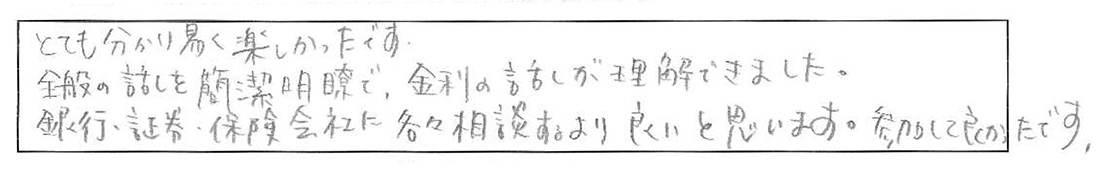 とても分かり易く楽しかったです.
全般の話しを簡潔明瞭で, 金利の話しが理解できました。
銀行、証券・保険会社に各々相談するより良いと思います。参加して良かったです,